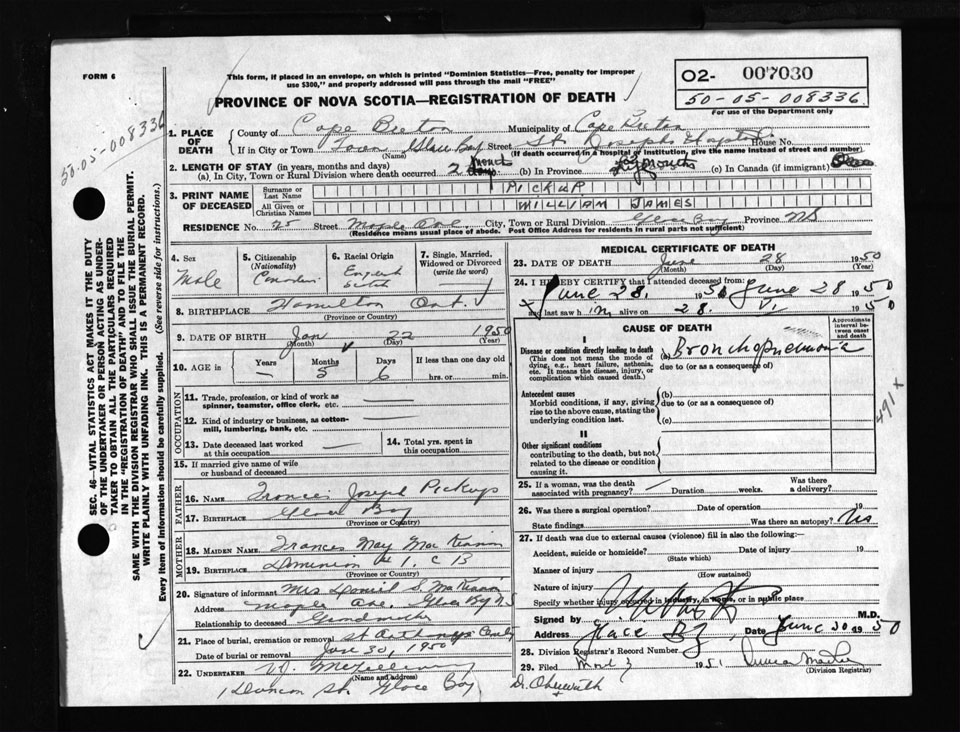 FORM 6
This form, if placed in an envelope, on which is printed "Dominion Statistics—Free, penalty for improper
use $300," and properly addressed will pass through the mail "FREE"
PROVINCE OF NOVA SCOTIA—REGISTRATION OF DEATH
02- 007030
50-05-008336
For use of the Department only
50-05-008336
1. PLACE OF DEATH
County of Cape Breton Municipality of Cape Breton
If in City or Town Town Glace Bay Street St. Josephs Hospital House No.
(Name) (If death occurred in a hospital or institution, give the name instead of street and number)
2. LENGTH OF STAY (in years, months and days)
(a). In City, Town or Rural Division where death occurred 2 (b) In Province months (c) In Canada (if immigrant)
3. PRINT NAME OF DECEASED
Surname or Last Name PICKUP
All Given or Christian Names WILLIAM JAMES
RESIDENCE No. 25 Street Maple Ave. City, Town or Rural Division Glace Bay Province NS
(Residence means usual place of abode. Post Office Address for residents in rural parts not sufficient)
4. Sex Male
5. Citizenship (Nationality) Canadian
6. Racial Origin English
7. Single, Married, Widowed or Divorced (write the word) —
8. BIRTHPLACE Hamilton Ont.
(Province or Country)
9. DATE OF BIRTH Jan 22 1950
(Month) (Day) (Year)
10. AGE in Years — Months 5 Days 6 If less than one day old
hrs. or min.
OCCUPATION
11. Trade, profession, or kind of work as spinner, teamster, office clerk, etc. —
12. Kind of industry or business, as cotton-mill, lumbering, bank, etc. —
13. Date deceased last worked at this occupation —
14. Total yrs. spent in this occupation
15. If married give name of wife or husband of deceased
FATHER
16. NAME Francis Joseph Pickup
17. BIRTHPLACE Glace Bay
(Province or Country)
MOTHER
18. MAIDEN NAME Frances May MacKinnon
19. BIRTHPLACE Dominion # 1. C B
(Province or Country)
20. Signature of informant Mrs Daniel S. MacKinnon
Address Maple Ave. Glace Bay N S
Relationship to deceased Grandmother
21. Place of burial, cremation or removal St Anthonys Cemetery
Date of burial or removal June 30, 1950
22. UNDERTAKER V.J. McGillivray
(Name and address)
1 Duncan St. Glace Bay
MEDICAL CERTIFICATE OF DEATH
23. DATE OF DEATH June 28 1950
(Month) (Day) (Year)
24. I HEREBY CERTIFY that I attended deceased from:
June 28. 1950 June 28 1950
last saw him alive on 28. VI 1950
CAUSE OF DEATH
Approximate interval between onset and death
I
Disease or condition directly leading to death (a) Bronchopneumonia
(This does not mean the mode of dying, e.g., heart failure, asthenia, etc. It means the disease, injury, or complication which caused death.)
due to (or as a consequence of)
Antecedent causes (b)
Morbid conditions, if any, giving rise to the above cause, stating the underlying condition last.
due to (or as a consequence of)
(c)
491 +
II
Other significant conditions
contributing to the death, but not related to the disease or condition causing it.
25. If a woman, was the death associated with pregnancy? — Duration weeks. Was there a delivery?
26. Was there a surgical operation? Date of operation 19
State findings Was there an autopsy?
27. If death was due to external causes (violence) fill in also the following:—
Accident, suicide or homicide? Date of injury 19
(State which)
Manner of injury
(How sustained)
Nature of injury
Specify whether injury occurred in industry, in home, or in public place
Signed by M.D.
Address Glace Bay Date June 30 1950
28. Division Registrar's Record Number
29. Filed 3 1951
(Division Registrar)
SEC. 46—VITAL STATISTICS ACT MAKES IT THE DUTY
OF THE UNDERTAKER OR PERSON ACTING AS UNDER-
TAKER TO OBTAIN ALL THE PARTICULARS REQUIRED
IN THE "REGISTRATION OF DEATH" AND TO FILE THE
SAME WITH THE DIVISION REGISTRAR WHO SHALL ISSUE THE BURIAL PERMIT.
WRITE PLAINLY WITH UNFADING INK. THIS IS A PERMANENT RECORD.
Every item of information should be carefully supplied. (See reverse side for instructions.)